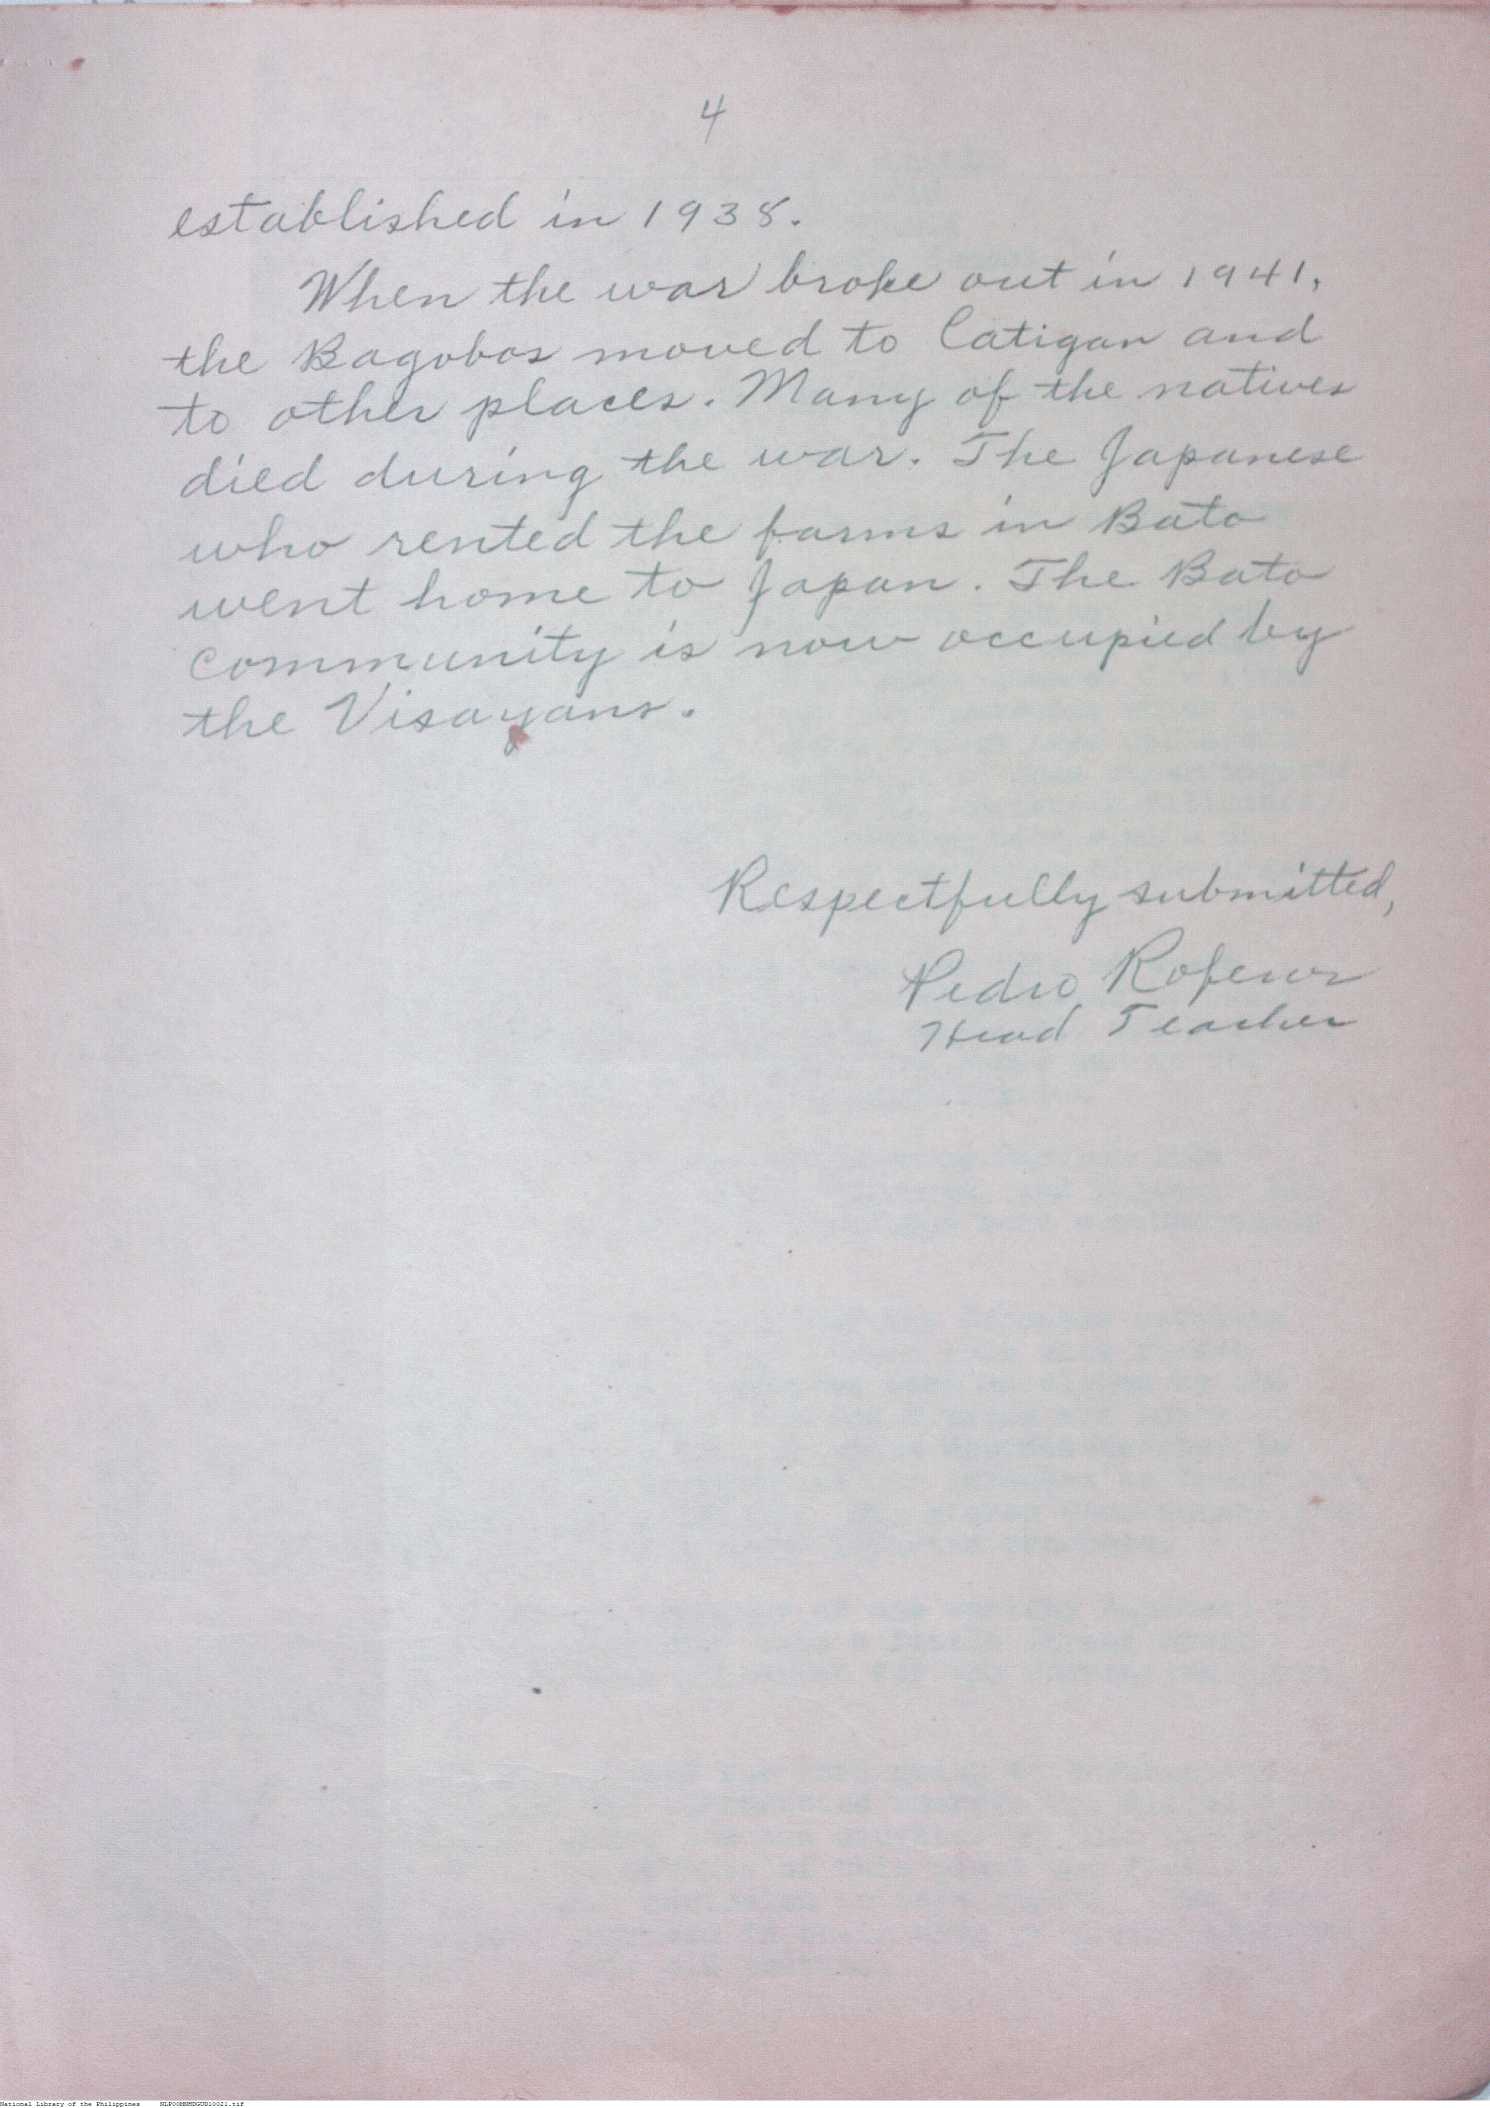 4
established in 1938.
When the war broke out in 1941,
the Bagobos moved to Catigan and
to other places. Many of the natives
died during the war. The Japanese
who rented the farms in Bato
went home to Japan. The Bato
community is now occupied by
the Visayans.
Respectfully submitted,
Pedro
Head Teacher
National Library of the Philippines